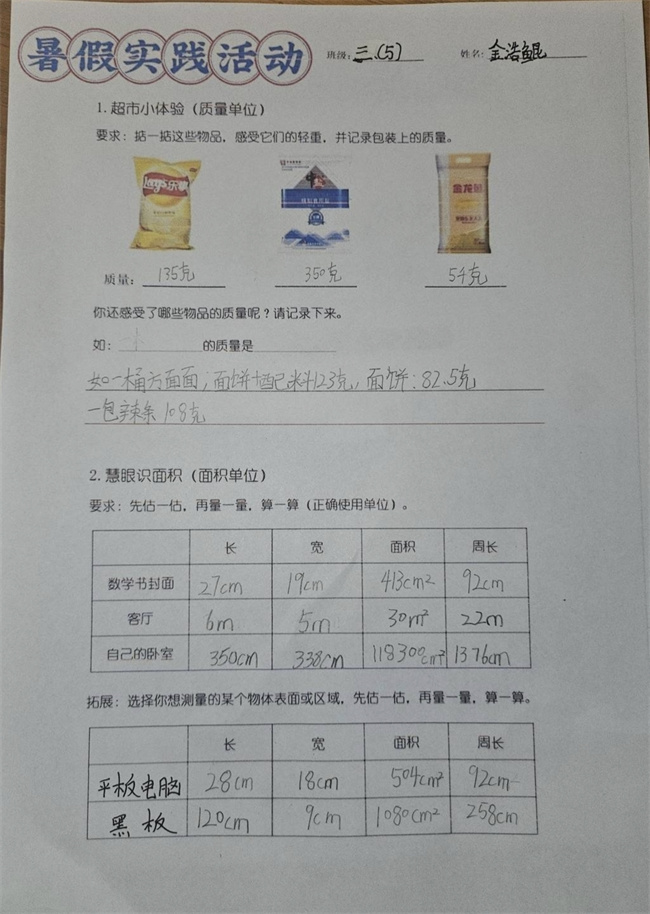 暑假实践活动
班级：三.(5) 姓名：金浩鲲
1. 超市小体验（质量单位）
要求：掂一掂这些物品，感受它们的轻重，并记录包装上的质量。
Lay's乐事 金龙鱼
质量：135克 350克 5千克
你还感受了哪些物品的质量呢？请记录下来。
如： 的质量是
如一桶方面面；面饼+配料123克，面饼：82.5克
一包辣条108克
2. 慧眼识面积（面积单位）
要求：先估一估，再量一量，算一算（正确使用单位）。
长 宽 面积 周长
数学书封面 27cm 19cm 413cm² 92cm
客厅 6m 5m 30m² 22m
自己的卧室 350cm 338cm 118300cm² 1376cm
拓展：选择你想测量的某个物体表面或区域，先估一估，再量一量，算一算。
长 宽 面积 周长
平板电脑 28cm 18cm 504cm² 92cm
黑板 120cm 9cm 1080cm² 258cm